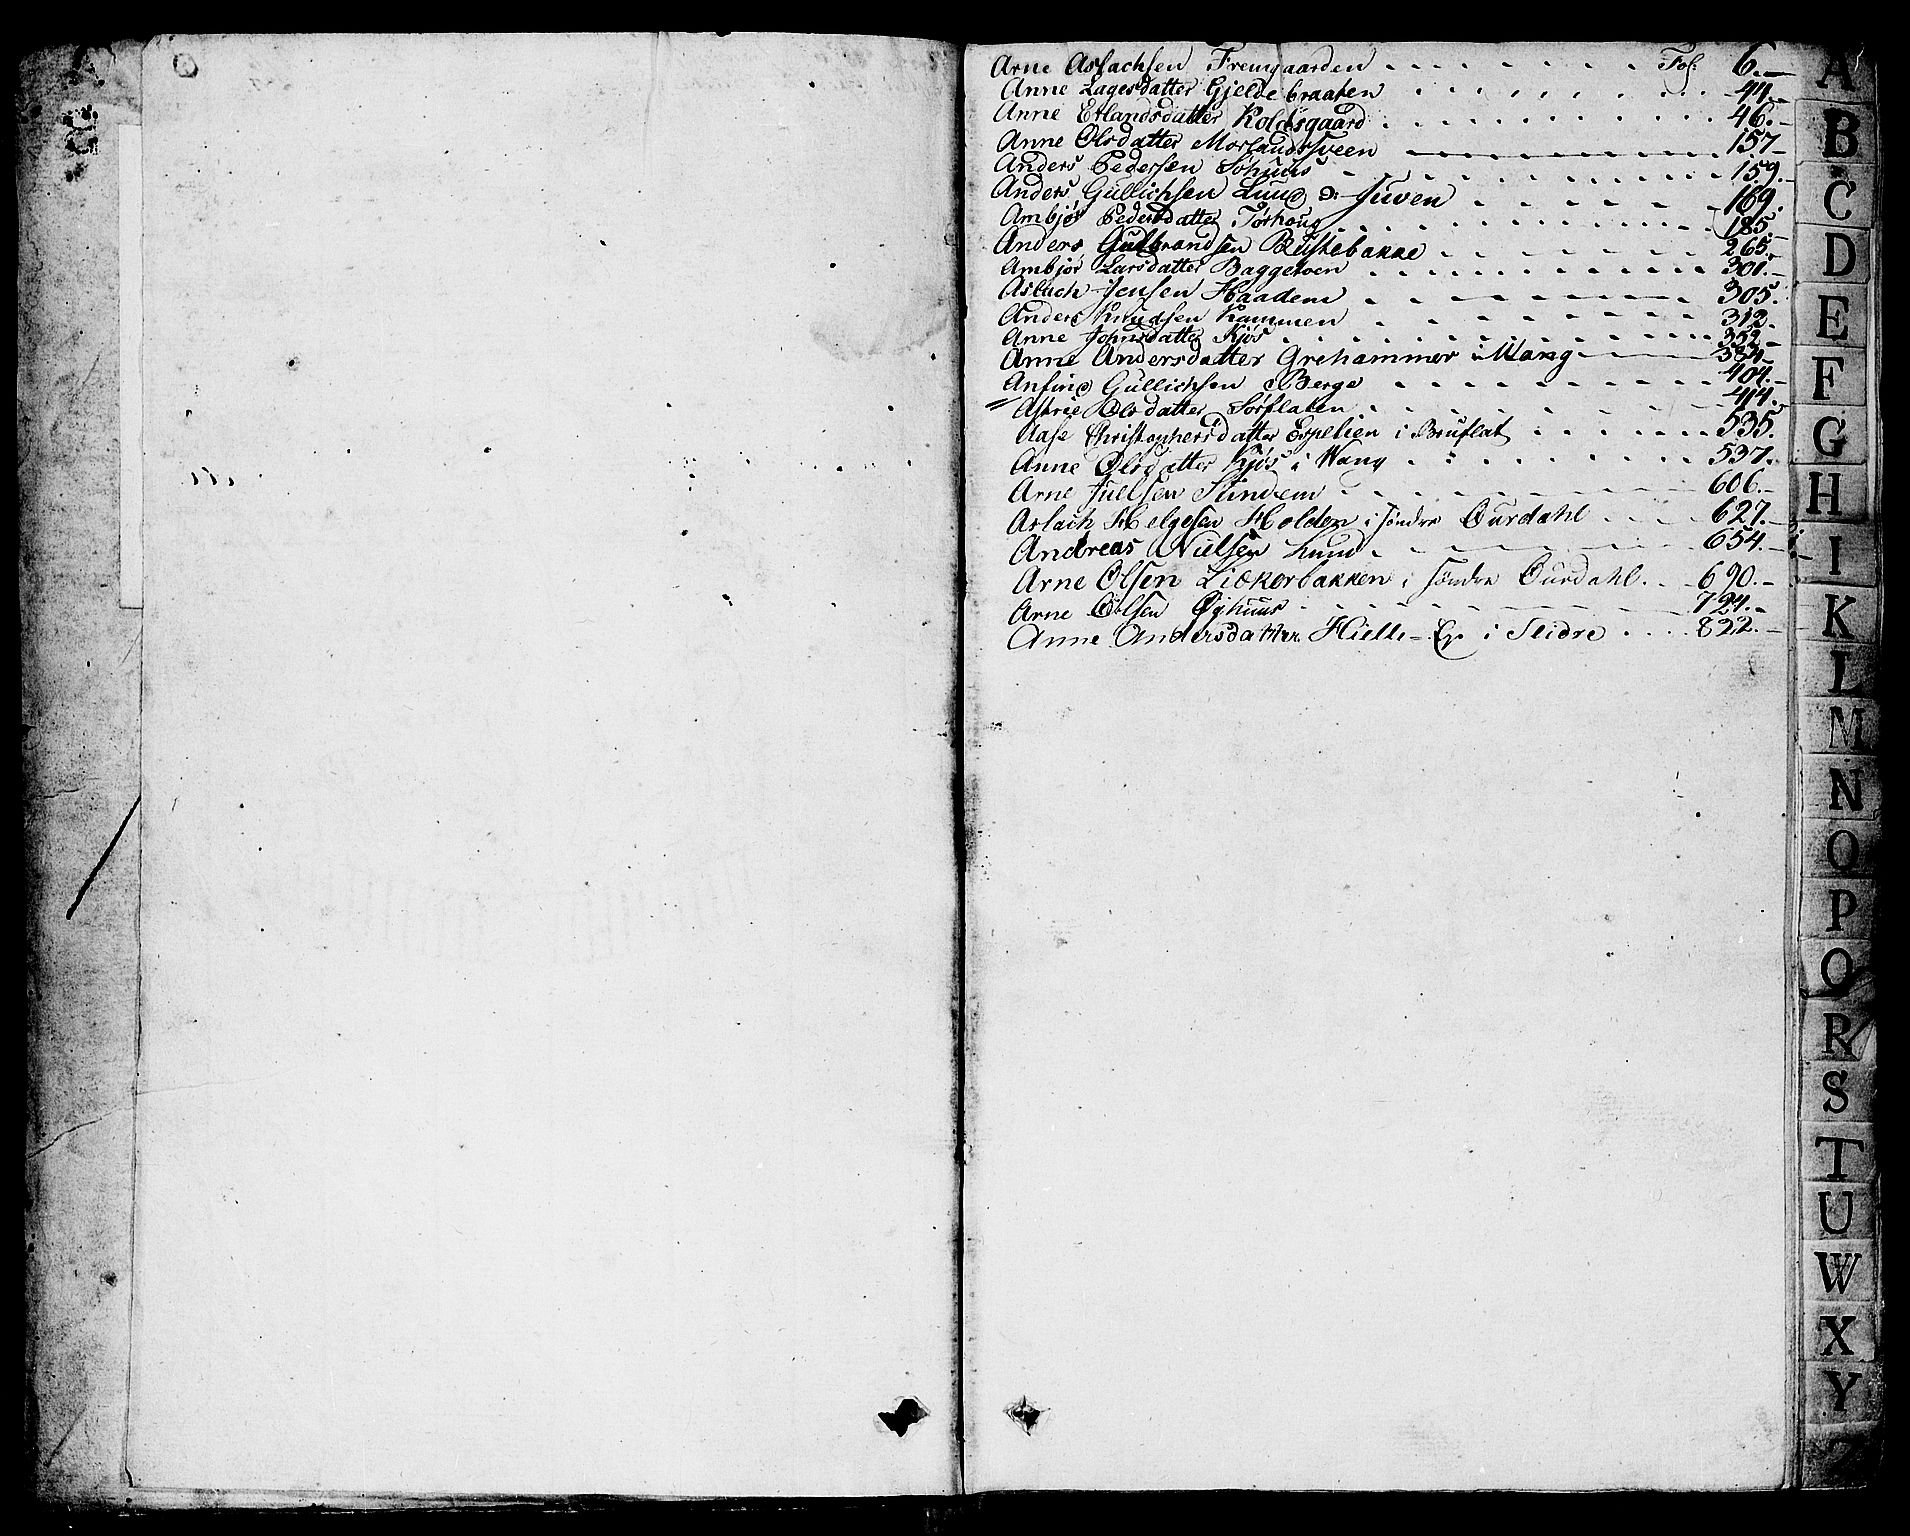 Arne Aslachsen Fremgaarden Fol. 6.
Anne Lagesdatter Gjeldebraaten 44.
Anne Erlandsdatter Koldsgaard 46.
Anne Olsdatter Morlandssveen 157
Anders Pedersen Sohuus 159.
Anders Gullichsen Lund Juven 169.
Ambjør Pedersdatter Torhoug 185.
Anders Gulbrandsen Rustebakke 265.
Ambjør Larsdatter Baggetoen 301.
Aslach Jensen Haadem 305.
Anders Knudsen Kammen 312.
Anne Johnsdatter Kjøs 352
Anne Andersdatter Grehammer i Wang 384
Anfind Gullichsen Berge 404.
Astrie Olsdatter Sørflaten 414.
Aase Christophersdatter Espelien i Bruflat 535.
Anne Olsdatter Kjøs i Wang 537.
Arne Juelsen Stindem 606.
Aslach Helgesen Holden i søndre Ourdahl 627.
Andreas Nielsen Lund 654.
Arne Olsen Liekerbakken i søndre Ourdahl 690.
Arne Olsen Øyhuus 724.
Anne Andersdatter Hielle-Ey i Slidre 822.
A
B
C
D
E
F
G
H
I
K
L
M
N
O
P
Q
R
S
T
U
W
X
Y
Z